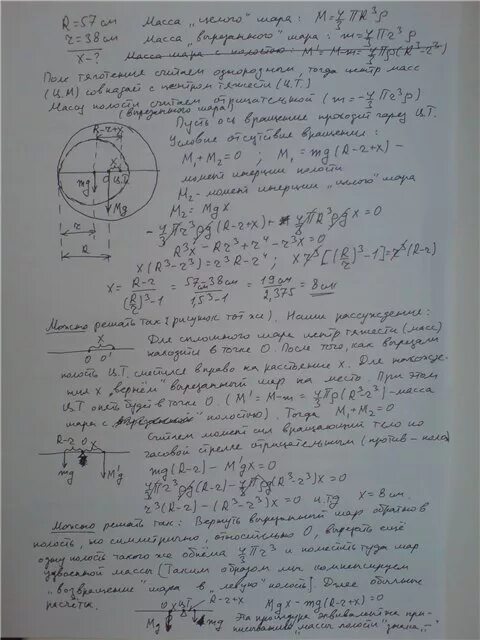 R=57см Масса „целого" шара: M=4/3πR³ρ
r=38см Масса „вырезанного" шара: m=4/3πr³ρ
x-? Масса шара с полостью: M'=M-m=4/3πρ(R³-r³)
Поле тяготения считаем однородным, тогда центр масс
(Ц.М) совпадает с центром тяжести (Ц.Т.)
Массу полости считаем отрицательной (m=-4/3πr³ρ)
(вырезанного шара)
Пусть ось вращение проходит через Ц.Т.
R-r+x
Условие отсутствие вращения:
M₁+M₂=0 ; M₁=mg(R-r+x) –
момент инерции полости
M₂- момент инерции „целого" шара
M₂=Mgx
x
O
Ц.Т.
mg
Mg
r
R
-4/3πr³ρg(R-r+x)+4/3πR³ρgx=0
R³x-Rr³+r⁴-r³x=0
x(R³-r³)=r³R-r⁴; xr³[(R/r)³-1]=r³(R-r)
x=(R-r)/((R/r)³-1)=(57-38см)/(1,5³-1)=19см/2,375=8см
Можно решать так (рисунок тот же). Наши рассуждение:
Для сплошного шара центр тяжести (масс)
находится в точке O. После того, как вырезали
x
O O'
полость Ц.Т. сместился вправо на расстояние x. Для нахожде-
ния x „вернём" вырезанный шар на место. При этом
Ц.Т опять будет в точке O. (M'=M-m=4/3πρ(R³-r³)-масса
шара с полостью). Тогда M₁+M₂=0
Считаем момент сил вращающий тело по
часовой стрелке отрицательным (против – полож)
R-r O x
mg
M'g
mg(R-r)-M'gx=0
4/3πr³ρg(R-r)-4/3πρg(R³-r³)x=0
r³(R-r)-(R³-r³)x=0 и.тд x=8см.
Можно решать так: Вернуть вырезанный шар обратно в
полость, но симметрично, относительно O, вырезать ещё
одну полость такого же объёма 4/3πr³ и поместить туда шар
удвоенной массы [Таким образом мы компенсируем
„возвращение" шара в „левую" полость]. Далее обычные
расчёты.
O x Ц.Т R-r+x
Mg
Mgx-mg(R-r+x)=0
Эта процедура эквивалентна при-
писыванию „массы полости" знака„-"